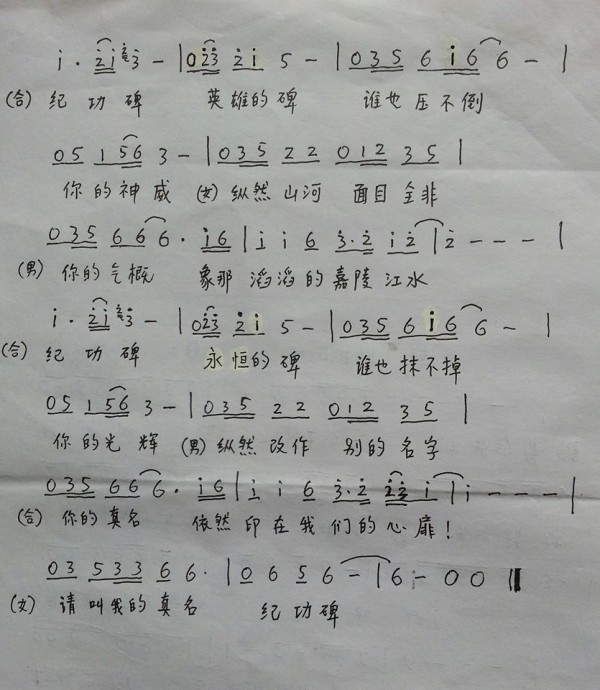 i · 2i 3 - | 023 2i 5 - | 035 6 i6 6 - |
(合) 纪功碑 英雄的碑 谁也压不倒
05 156 3 - | 035 22 012 35 |
你的神威 (女) 纵然山河 面目全非
035 666 · i6 | i i 6 3·2 i2 | 2 - - - |
(男) 你的气概 象那滔滔的嘉陵江水
i · 2i 3 - | 023 2i 5 - | 035 6 i6 6 - |
(合) 纪功碑 永恒的碑 谁也抹不掉
05 156 3 - | 035 22 012 35 |
你的光辉 (男) 纵然改作 别的名字
035 666 · i6 | i i 6 3·2 23 i | i - - - |
(合) 你的真名 依然印在我们的心扉!
03 533 66 · | 0 6 5 6 - | 6 - 0 0 ||
(女) 请叫我的真名 纪功碑